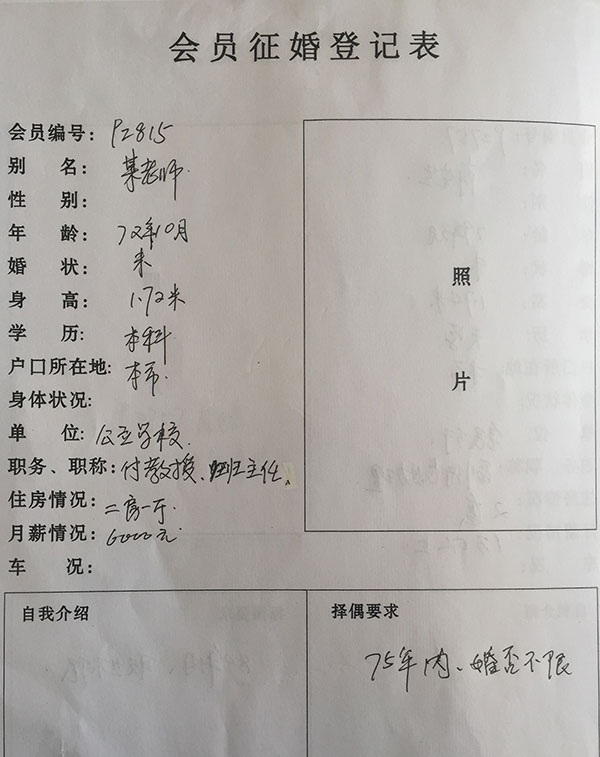 会员征婚登记表
会员编号: P2815
别 名: 某老师.
性 别:
年 龄: 72年10月
婚 状: 未
身 高: 1.72米
学 历: 本科
户口所在地: 本市.
身体状况:
单 位: 公立学校.
职务、职称: 付教授、班主任.
住房情况: 二房一厅.
月薪情况: 6000元
车 况:
照
片
自我介绍
择偶要求
75年内、婚否不限